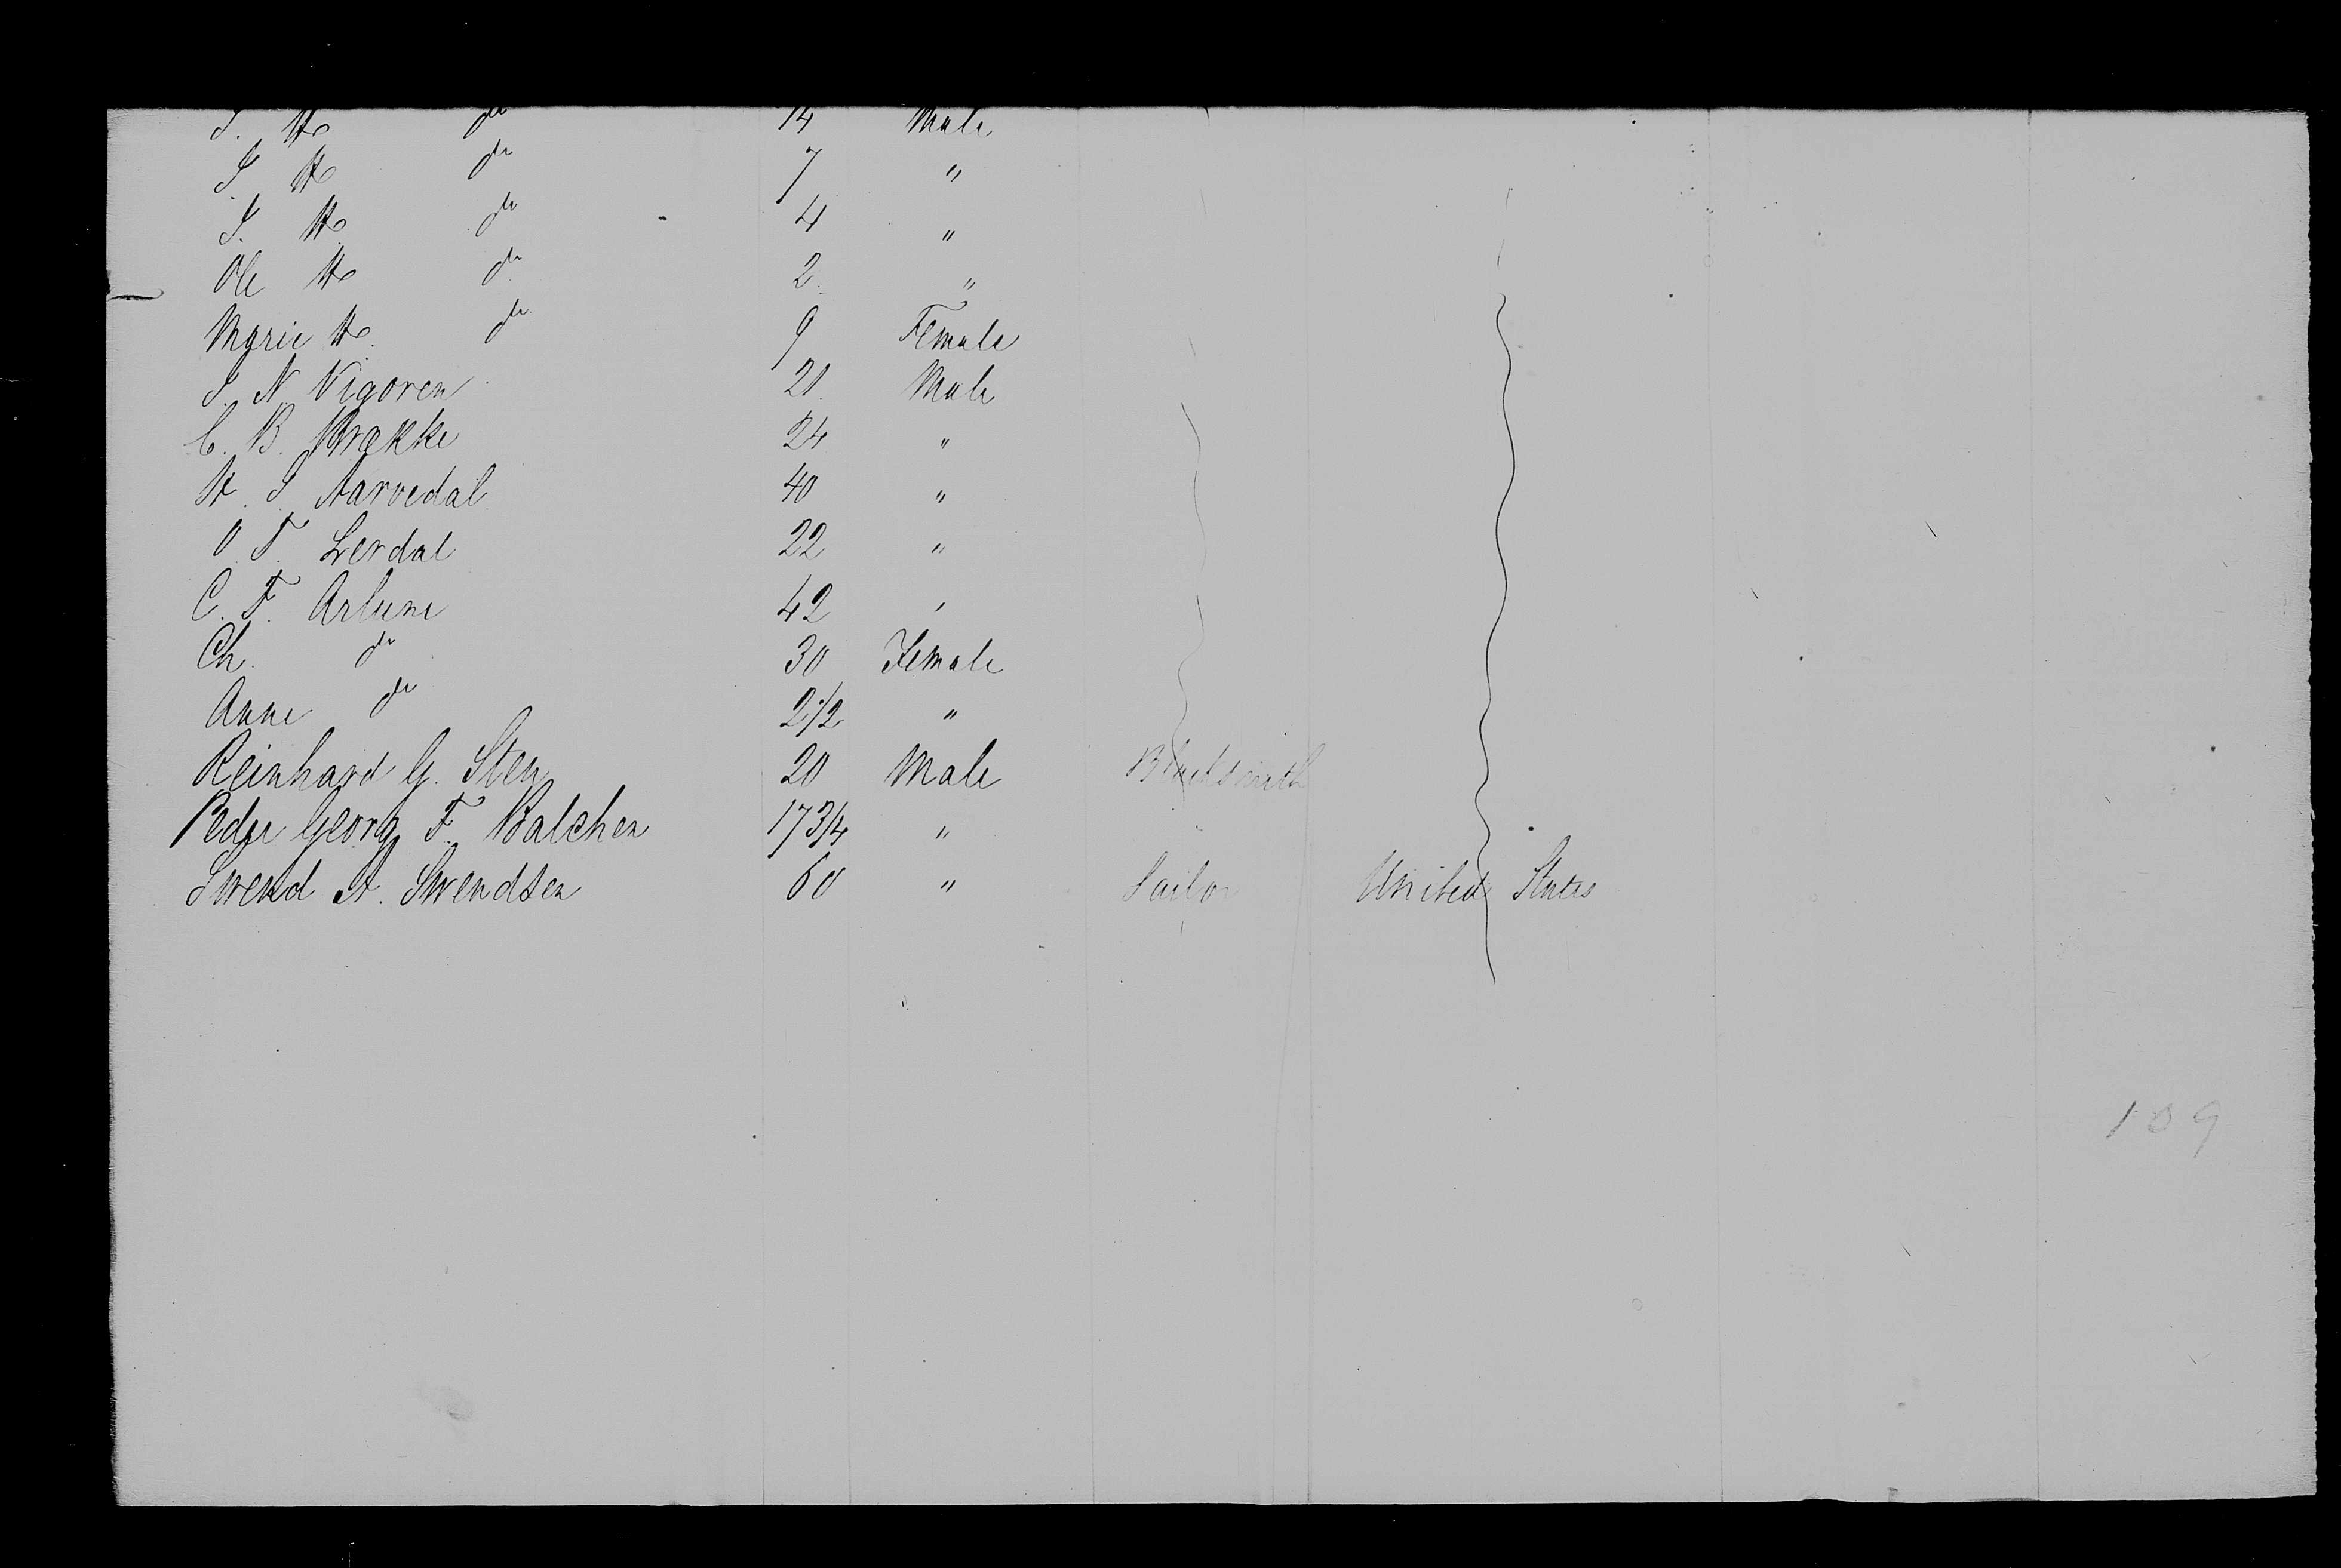 J. H. do 14 Male
J. H. do 7 "
J. H. do 4 "
Ole H. do 2 "
Marie H. do 9 Female
J. N. Vigoren 21 Male
C. B. Brække 24 "
H. J. Aarvedal 40 "
O. T. Lerdal 22 "
C. F. Arlune 42 "
Ch. do 30 Female
Anne do 2 1/2 "
Reinhard G. Sten 20 Male Blacksmith
Peder Georg F. Balchen 17 3/4 "
Swend A. Swendsen 60 " Sailor United States
109